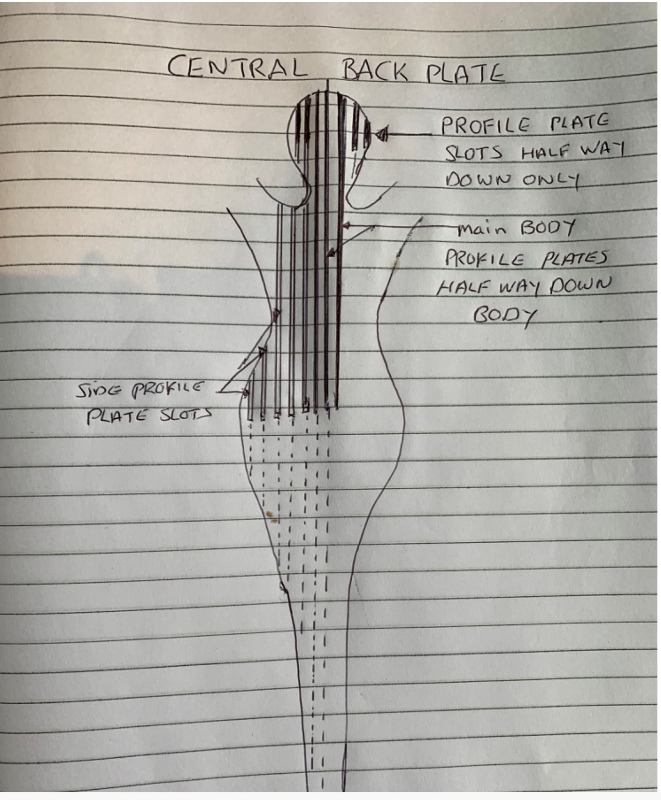 CENTRAL BACK PLATE
PROFILE PLATE
SLOTS HALF WAY
DOWN ONLY
main BODY
PROFILE PLATES
HALF WAY DOWN
BODY
SiDE PROFILE
PLATE SLOTS